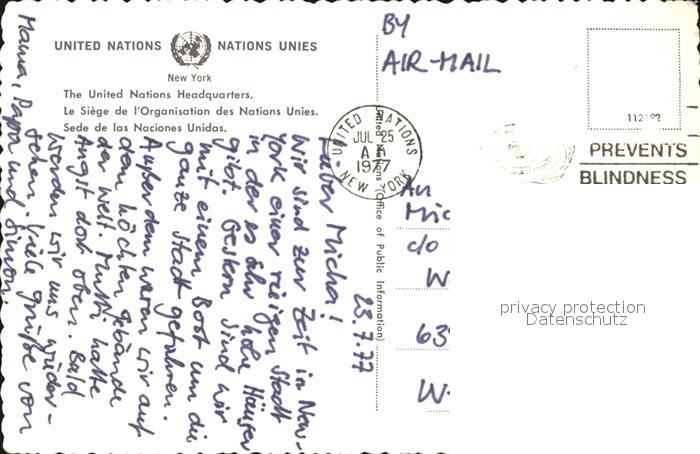 UNITED NATIONS NATIONS UNIES
New York
The United Nations Headquarters.
Le Siège de l'Organisation des Nations Unies.
Sede de las Naciones Unidas.
BY
AIR-MAIL
112182
UNITED NATIONS
JUL 25
AM
1977
NEW YORK
PREVENTS
BLINDNESS
(Office of Public Information)
23.7.77
Lieber Micha!
Wir sind zur Zeit in New-
York einer riesigen Stadt
in der es sehr hohe Häuser
gibt. Gestern sind wir
mit einem Boot um die
ganze Stadt gefahren.
Außerdem waren wir auf
dem höchsten Gebäude
der Welt. Mutti hatte
Angst dort oben. Bald
werden wir uns wieder-
sehen. Viele Grüße von
Mama, Papa und Simon.
An
Mic
c/o
W
63
W
privacy protection
Datenschutz